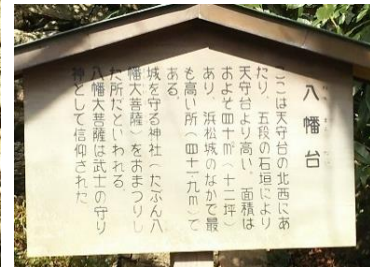 八幡台
ここは天守台の北西にあ
たり、五段の石垣により
天守台より高い。面積は
およそ四十㎡（十二坪）
あり、浜松城のなかで最
も高い所（四十一九m）で
ある。
城を守る神社（たぶん八
幡大菩薩）をおまつりし
た所だといわれる。
八幡大菩薩は武士の守り
神として信仰された